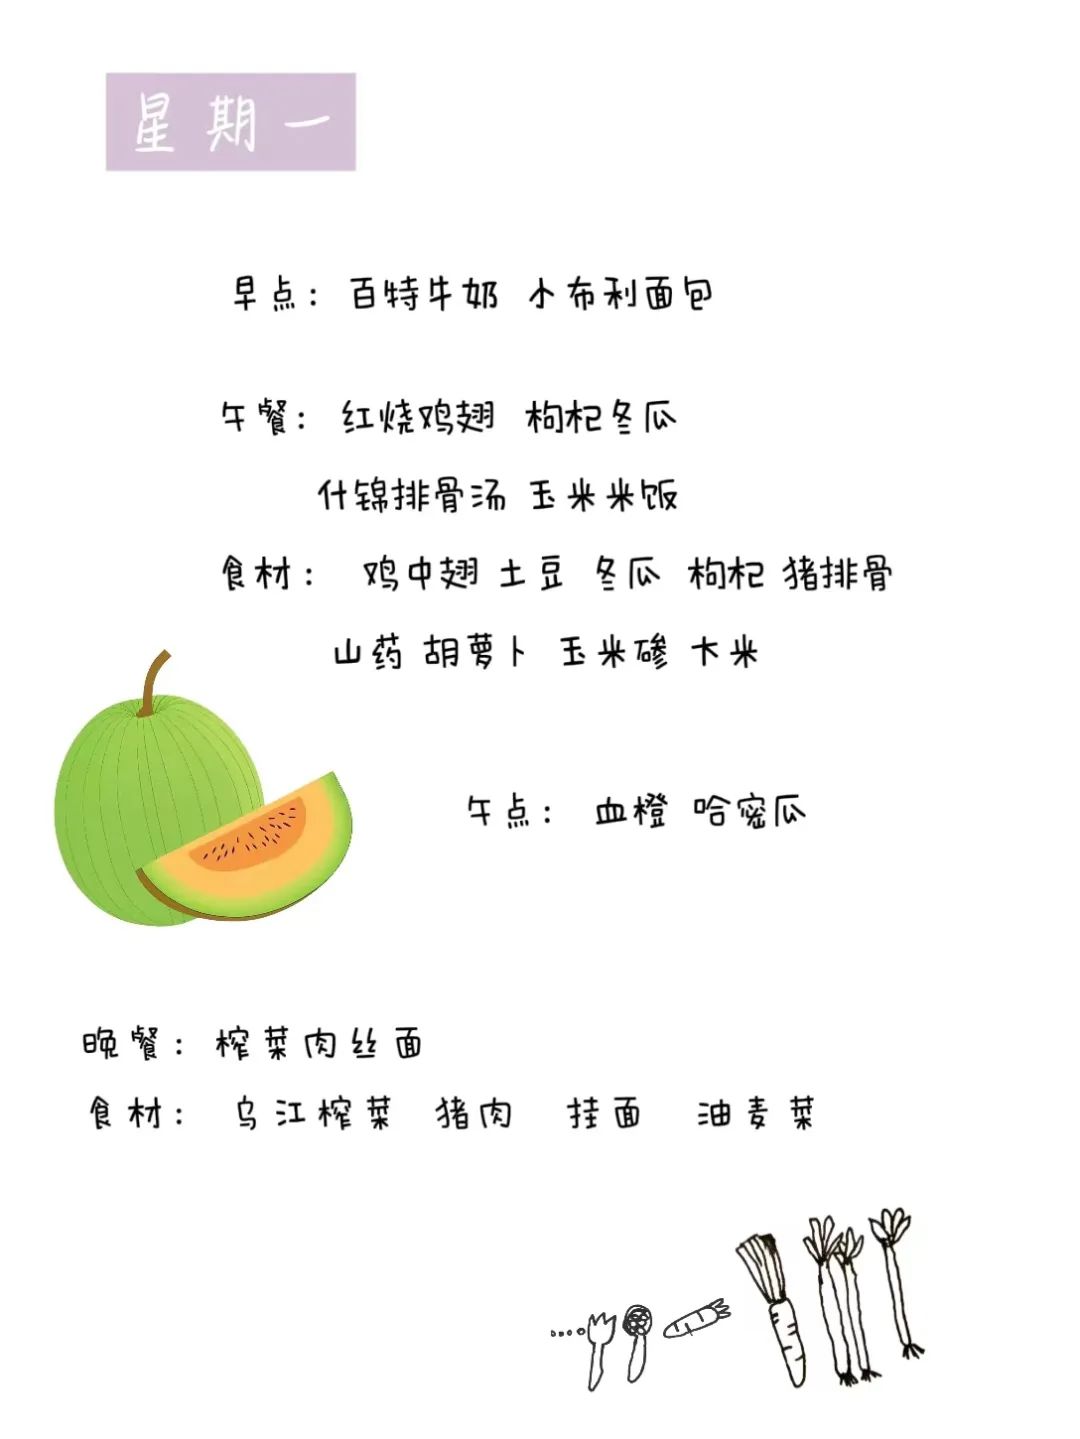 星期一
早点：百特牛奶 小布利面包
午餐：红烧鸡翅 枸杞冬瓜
什锦排骨汤 玉米米饭
食材： 鸡中翅 土豆 冬瓜 枸杞 猪排骨
山药 胡萝卜 玉米碜 大米
午点： 血橙 哈密瓜
晚餐：榨菜肉丝面
食材： 乌江榨菜 猪肉 挂面 油麦菜